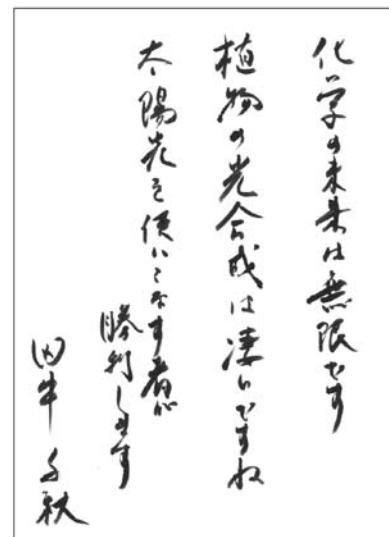 化学の未来は無限です
植物の光合成は凄いですね
太陽光を使いこなす者が
勝利します
田中千秋